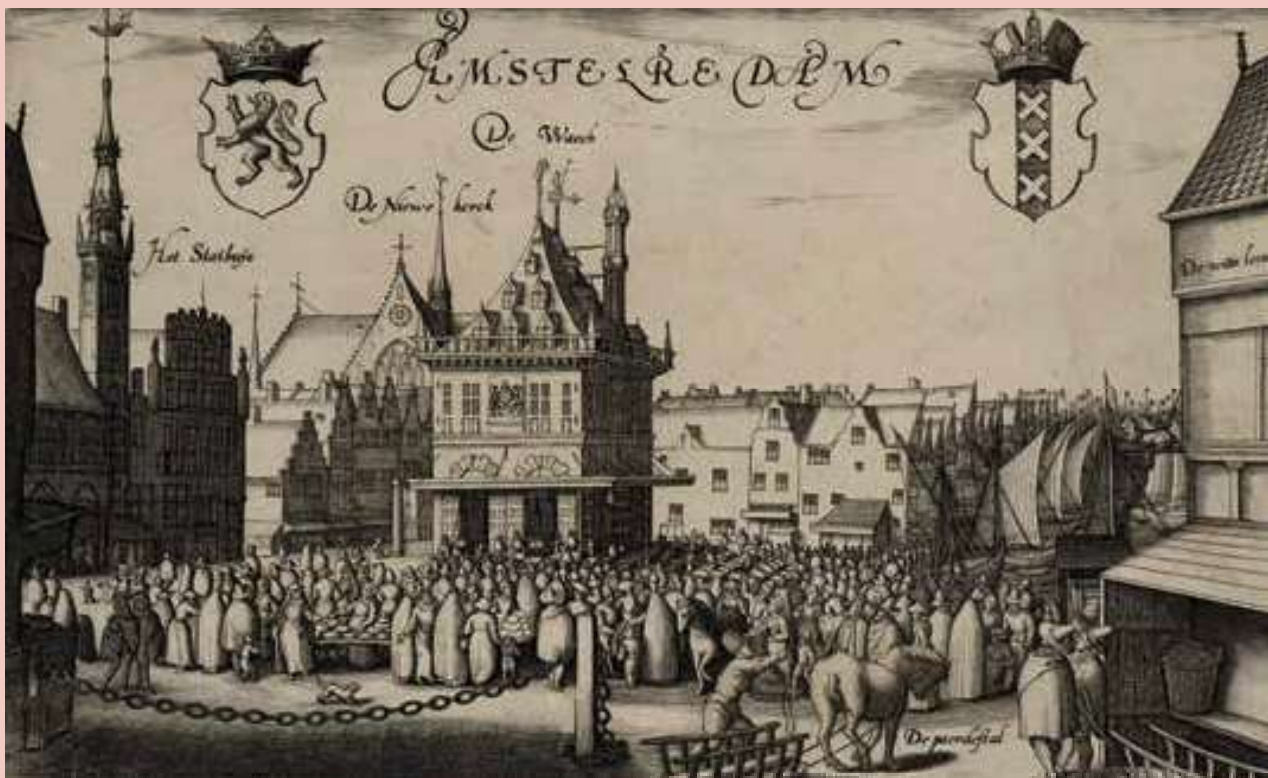 AMSTELREDAM
De Waech
De Nieuwe kerck
Het Stathuys
De witte
De paerdestal